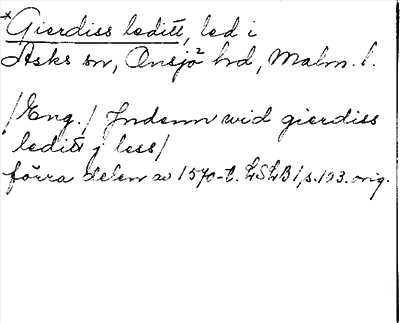 *Gierdiss leditt, led i
Asks sn, Onsjö hd, Malm. l.
/Eng./ Jndenn wid gierdiss
leditt j less/
förra delen av 1570-t. LSLB 1, s. 193. orig.